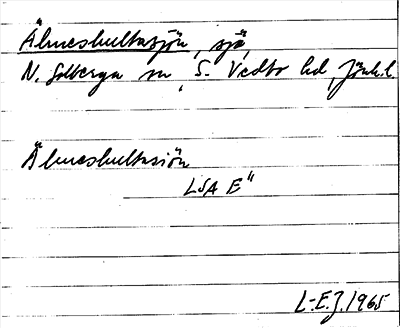 Älmeshultasjön, sjö,
N. Solberga sn, S. Vedbo hd, Jönk.l.
Älmeshultasiön
LSA E"
L-E.J. 1965